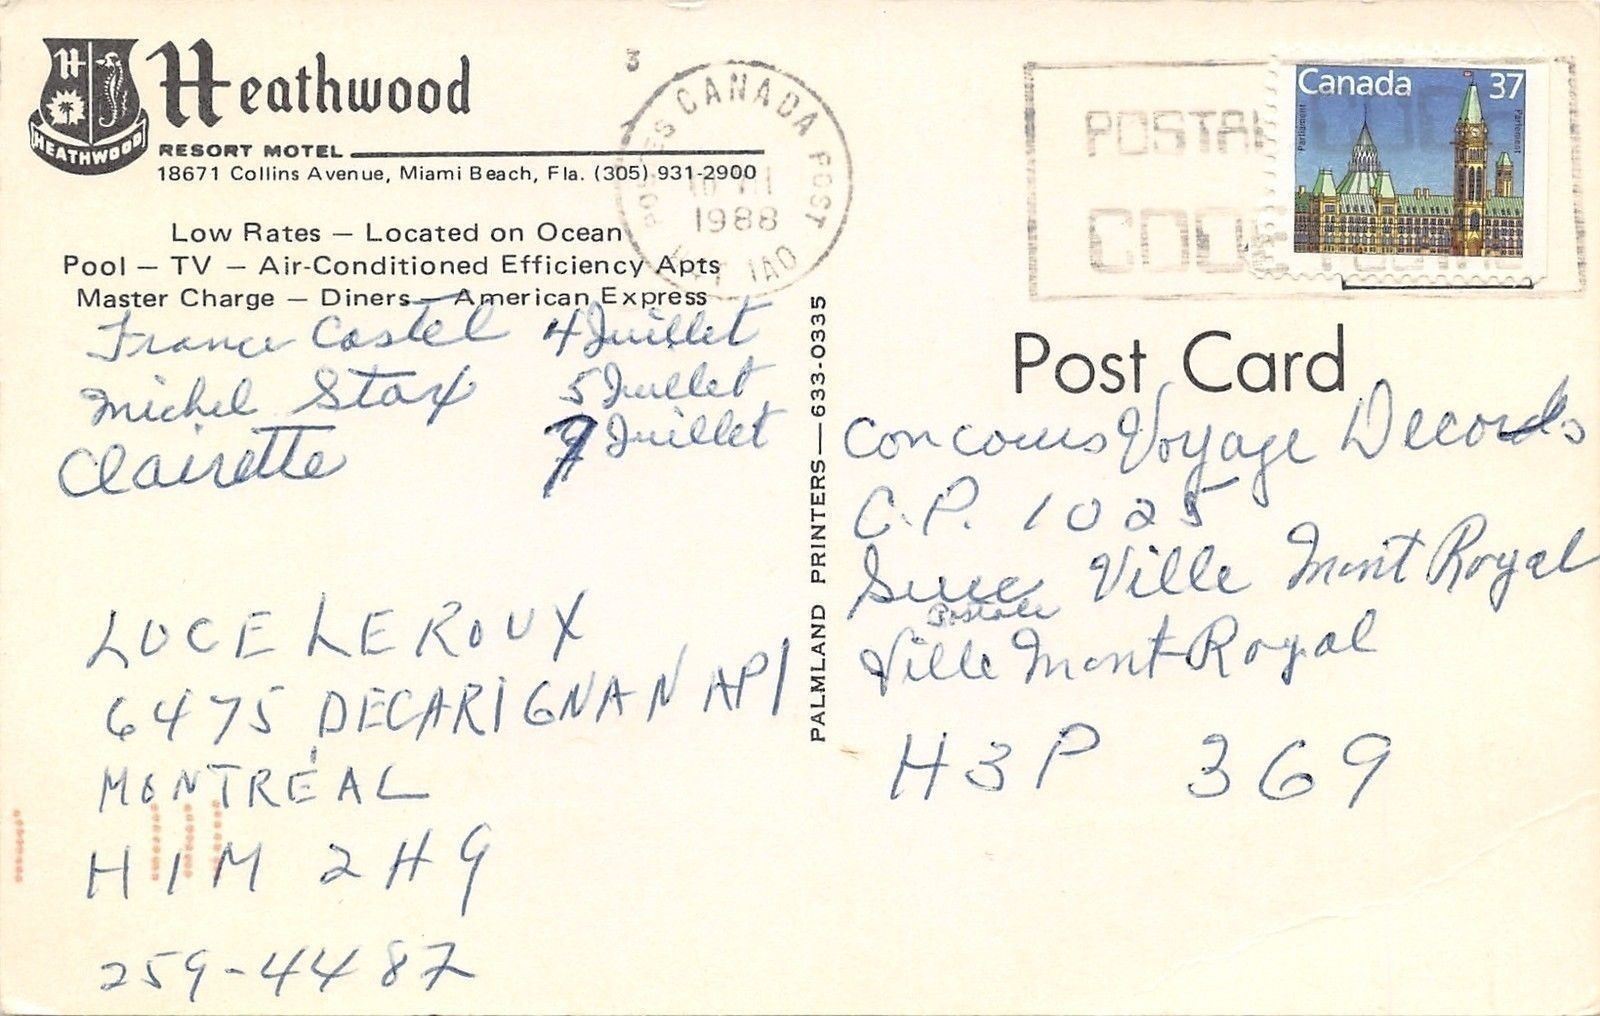 Heathwood
HEATHWOOD
RESORT MOTEL
18671 Collins Avenue, Miami Beach, Fla. (305) 931-2900
Low Rates — Located on Ocean
Pool — TV — Air-Conditioned Efficiency Apts
Master Charge — Diners — American Express
France Castel 4 Juillet
Michel Stax 5 Juillet
Clairette 9 Juillet
LUCE LEROUX
6475 DECARIGNAN AP1
MONTRÉAL
H1M 2H9
259-4487
PALMLAND PRINTERS—633-0335
3
POSTES CANADA POST
1988
POSTAL CODE
CODE POSTAL
Canada 37
Parliament
Parlement
Post Card
Concours Voyage Records
C.P. 1025
Ville Mont Royal
Postale
Ville Mont-Royal
H3P 369